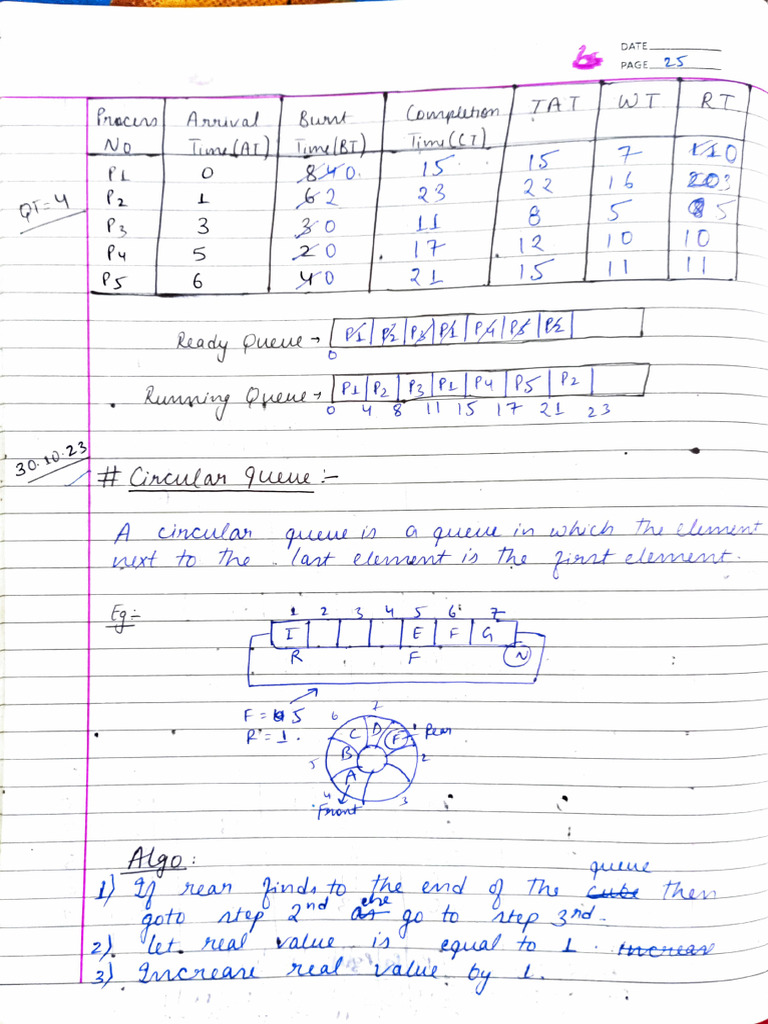 DATE
PAGE 25
Process No Arrival Time(AT) Burst Time(BT) Completion Time(CT) TAT WT RT
QT=4
P1 0 8 4 0. 15 15 7 0
P2 1 6 2 23 22 16 3
P3 3 3 0 11 8 5 5
P4 5 2 0 17 12 10 10
P5 6 4 0 21 15 11 11
Ready Queue → P1 P2 P3 P1 P4 P5 P2
0
Running Queue → P1 P2 P3 P1 P4 P5 P2
0 4 8 11 15 17 21 23
30.10.23
# Circular Queue :-
A circular queue is a queue in which the element
next to the last element is the first element.
Eg:-
1 2 3 4 5 6 7
I E F G
R F N
F = 5
R = 1.
6 1
C D F Rear
5 B 2
A
4 3
Front
Algo:
queue
1) If rear finds to the end of the cube then
goto step 2nd else go to step 3rd.
2) Let real value is equal to 1. Increase
3) Increase real value by 1.